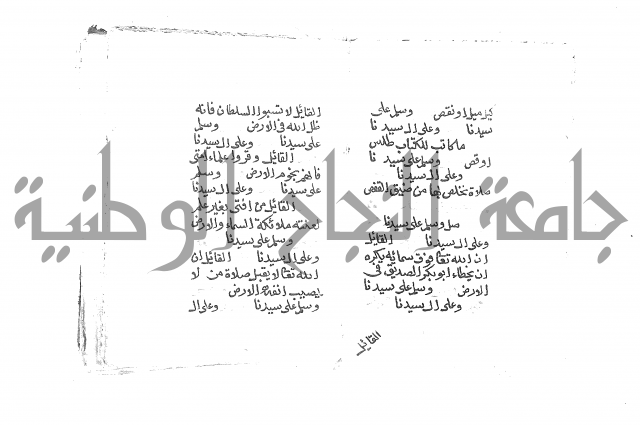 كيل ميل او نقص وسلم على
سيدنا وعلى ال سيدنا
ما كاتب للكتاب طلس
او قص وسلم على سيدنا
وعلى ال سيدنا
صلاة تخلص بها من ضيق القفص
صل وسلم على سيدنا
وعلى ال سيدنا القائل
ان الله تعالى فوق سمائه يكره
ان يخطاء ابو بكر الصديق في
الارض وسلم على سيدنا
وعلى ال سيدنا
القائل
القائل لا تسبوا السلطان فانه
ظل الله في الارض وسلم
على سيدنا وعلى ال سيدنا
القائل وقروا علماء امتي
فانهم نجوم الارض وسلم
على سيدنا وعلى ال سيدنا
القائل من افتى بغير علم
لعنته ملائكة السماء والارض
وسلم على سيدنا
وعلى ال سيدنا القائل ان
الله تعالى لا يقبل صلاة من لا
يصيب انفه الارض
وسلم على سيدنا وعلى ال
جامعة النجاح الوطنية